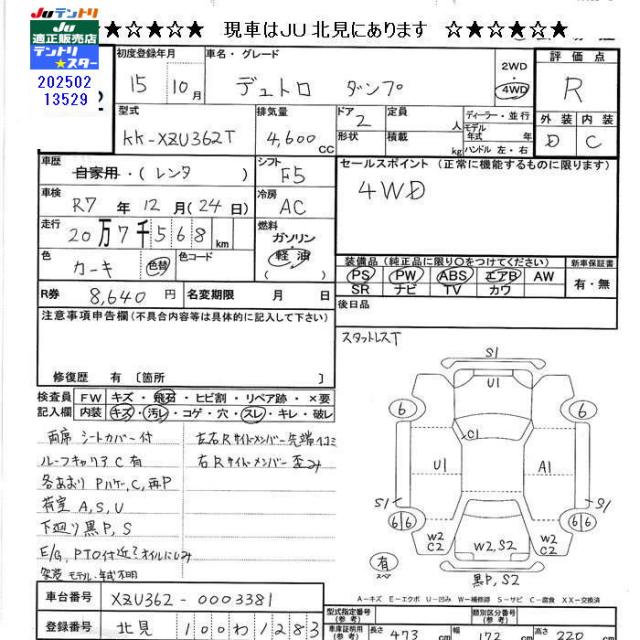 ★☆★☆★☆ 現車はJU北見にあります ☆★☆★☆★
JUテントリ
JU
適正販売店
テントリ
★スター
202502
13529
初度登録年月 車名・グレード 2WD 評価点
15 10月 デュトロ ダンプ 4WD R
型式 排気量 ドア 定員 ディーラー・並行 外装 内装
KK-XZU362T 4,600CC 2 人 モデル年式 年 D C
形状 積載 kg ハンドル 左・右
車歴 シフト セールスポイント(正常に機能するものに限ります)
自家用・(レンタ) F5 4WD
車検 冷房
R7年12月(24日) AC
走行 燃料
20万7千568km ガソリン
色 色替 色コード 軽油
カーキ ( )
装備品(純正品に限り○をつけてください) 新車保証書
PS PW ABS エアB AW 有・無
SR ナビ TV カワ
R券 8,640円 名変期限 月 日
後日品
注意事項申告欄(不具合内容等は具体的に記入して下さい)
スタットレスT
修復歴 有〔箇所 〕
検査員 FW キズ・飛石・ヒビ割・リペア跡・×要
記入欄 内装 キズ・汚レ・コゲ・穴・スレ・キレ・破レ
両席シートカバー付 左右Rサイドメンバー先端凹コミ
ルーフキャリアC有 右Rサイドメンバー歪み
各あおりPハケ、C、再P
荷室A,S,U
下廻り黒P,S
E/G,PTO付近ミオイルにじみ
架装モデル・年式不明
S1
U1
6 6
C1
U1 A1
S1 S1
6 6 6 6
W2 C2 W2,S2 W2 C2
有
スペア
黒P,S2
A-キズ E-エクボ U-凹み W-補修跡 S-サビ C-腐食 XX-交換済
車台番号 XZU362-0003381
登録番号 北見 100わ1283
型式指定番号(参考) 類別区分番号(参考)
車庫証明用(参考) 長さ 473cm 幅 172cm 高さ 220cm